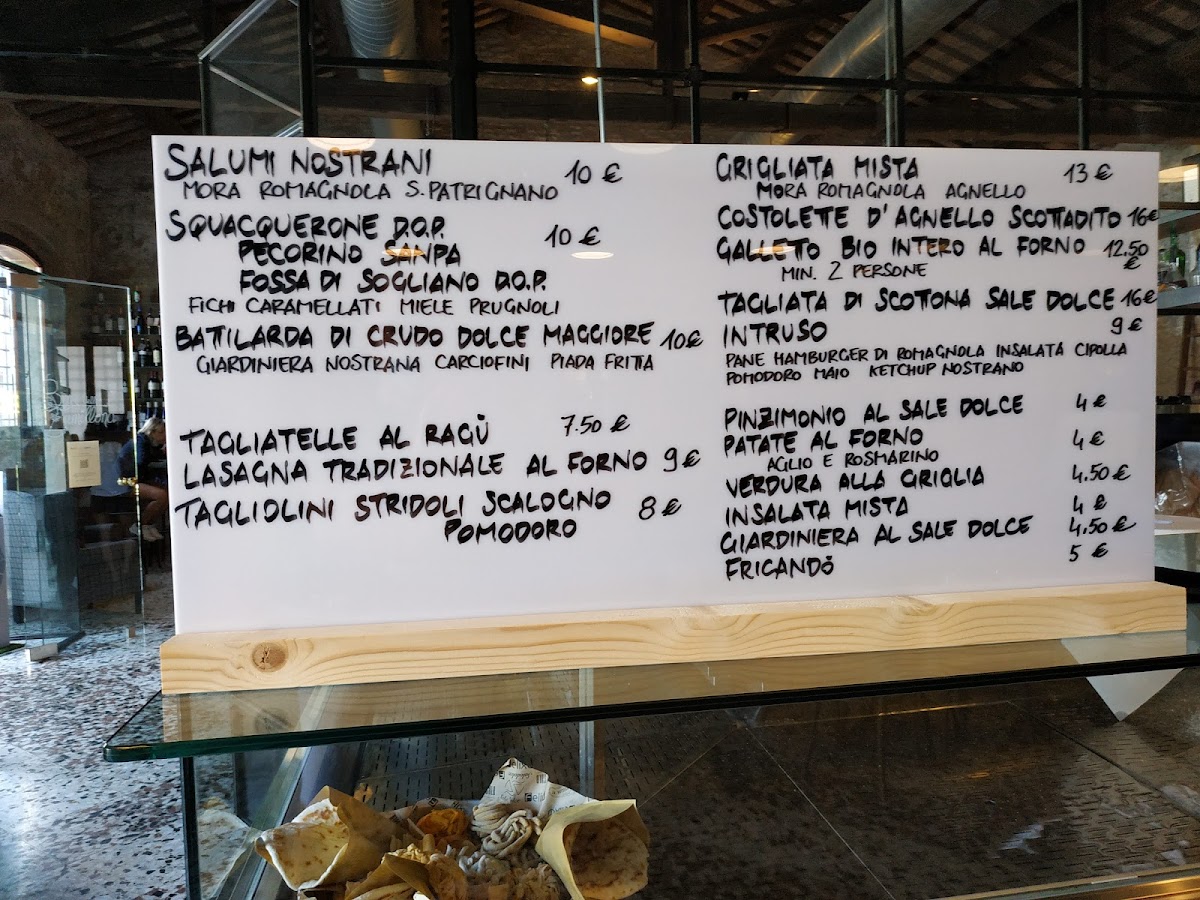 SALUMI NOSTRANI 10 €
MORA ROMAGNOLA S. PATRIGNANO
SQUACQUERONE D.O.P.
PECORINO SANPA 10 €
FOSSA DI SOGLIANO D.O.P.
FICHI CARAMELLATI MIELE PRUGNOLI
BATTILARDA DI CRUDO DOLCE MAGGIORE 10€
GIARDINIERA NOSTRANA CARCIOFINI PIADA FRITTA
TAGLIATELLE AL RAGÙ 7.50 €
LASAGNA TRADIZIONALE AL FORNO 9€
TAGLIOLINI STRIDOLI SCALOGNO 8€
POMODORO
GRIGLIATA MISTA 13 €
MORA ROMAGNOLA AGNELLO
COSTOLETTE D'AGNELLO SCOTTADITO 16€
GALLETTO BIO INTERO AL FORNO 12.50 €
MIN. 2 PERSONE
TAGLIATA DI SCOTTONA SALE DOLCE 16€
INTRUSO 9€
PANE HAMBURGER DI ROMAGNOLA INSALATA CIPOLLA
POMODORO MAIO KETCHUP NOSTRANO
PINZIMONIO AL SALE DOLCE 4€
PATATE AL FORNO 4€
AGLIO E ROSMARINO
VERDURA ALLA GRIGLIA 4.50€
INSALATA MISTA 4€
GIARDINIERA AL SALE DOLCE 4.50€
FRICANDÒ 5€